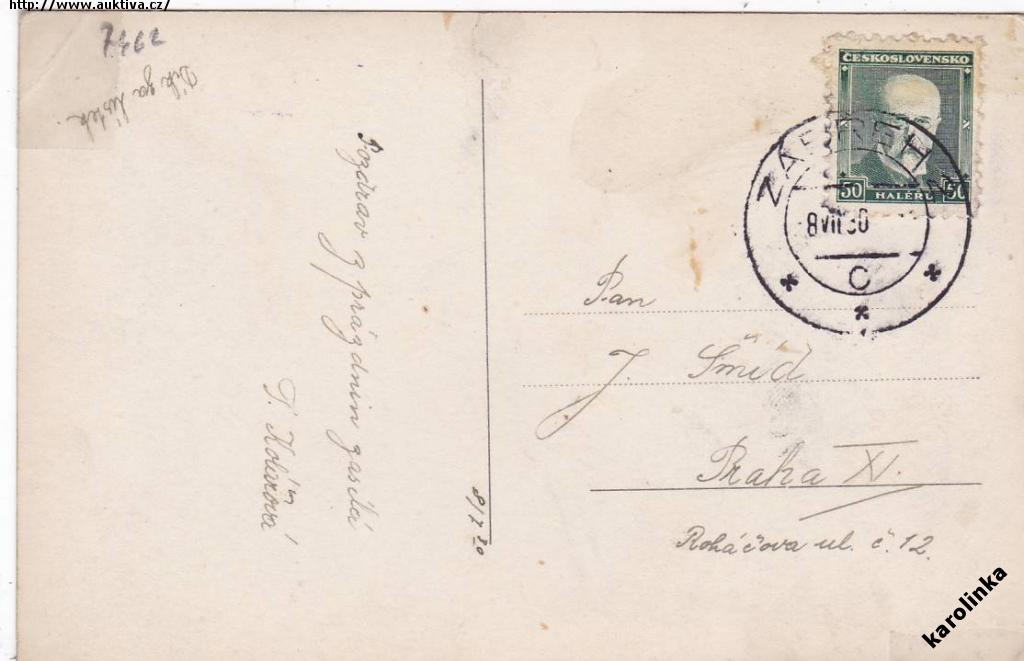 http://www.auktiva.cz/
7462
Dík za lístek.
Pozdrav z prázdnin zasílá
T. Kolářová
8/7 30
ČESKOSLOVENSKO
50 HALÉŘŮ 50
ZÁBŘEH
8 VII 30
C
Pan
J. Šmíd
Praha XI.
Roháčova ul. č. 12.
karolinka